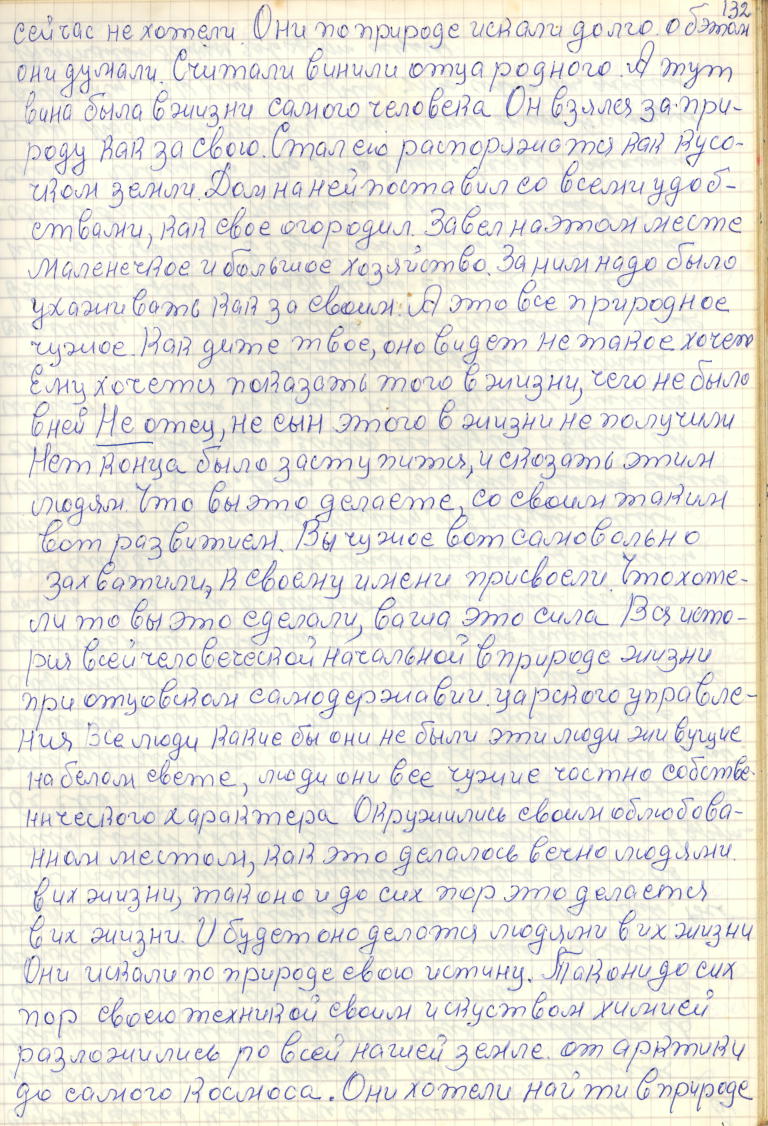 132
сейчас не хотели Они по природе искали долго. об этом
они думали. Считали винили отца родного. А тут
вина была в жизни самого человека Он взялся за при-
роду как за свою. Стал ею распоряжатся как кусо-
чком земли. Дом на ней поставил со всеми удоб-
ствами, как свое огородил. Завел на этом месте
маленечкое и большое хозяйство. За ним надо было
ухаживать как за своим. А это все природное
чужое. Как дите твое, оно видет не такое хочет
Ему хочется показать того в жизни, чего не было
в ней Не отец, не сын этого в жизни не получили
Нет конца было заступится, и сказать этим
людям. Что вы это делаете, со своим таким
вот развитием. Вы чужое вот самовольно
захватили, к своему имени присвоели. Что хоте-
ли то вы это сделали, ваша это сила Вся исто-
рия всей человеческой начальной в природе жизни
при отцовском самодержавии. царского управле-
ния Все люди какие бы они не были эти люди живущие
на белом свете, люди они все чужие частно собстве-
ннического характера Окружились своим облюбова-
нном местом, как это делалось вечно людями.
в их жизни, так оно и до сих пор это делается
в их жизни. И будет оно делатся людями в их жизни
Они искали по природе свою истину. Так они до сих
пор своею техникой своим искуством химией
разложились по всей нашей земле. от арктики
до самого космоса. Они хотели найти в природе